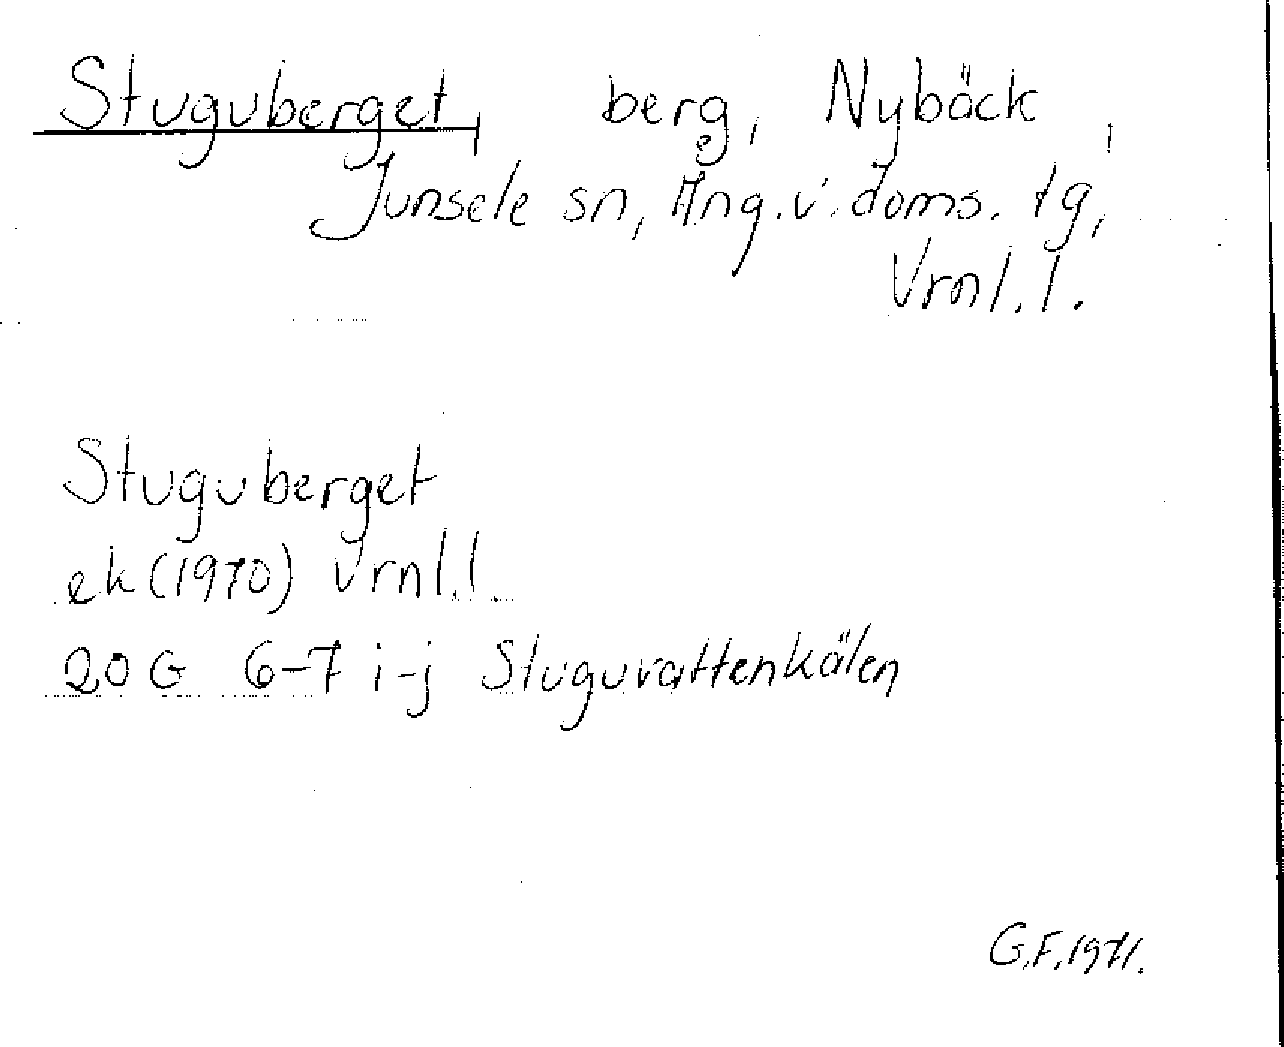 Stuguberget, berg, Nybäck,
Junsele sn, Ång.v. doms. tg,
Vrnl.l.
Stuguberget
ek(1970) Vrnl.l.
20 G 6-7 i-j Stuguvattenkälen
G.F.1971.